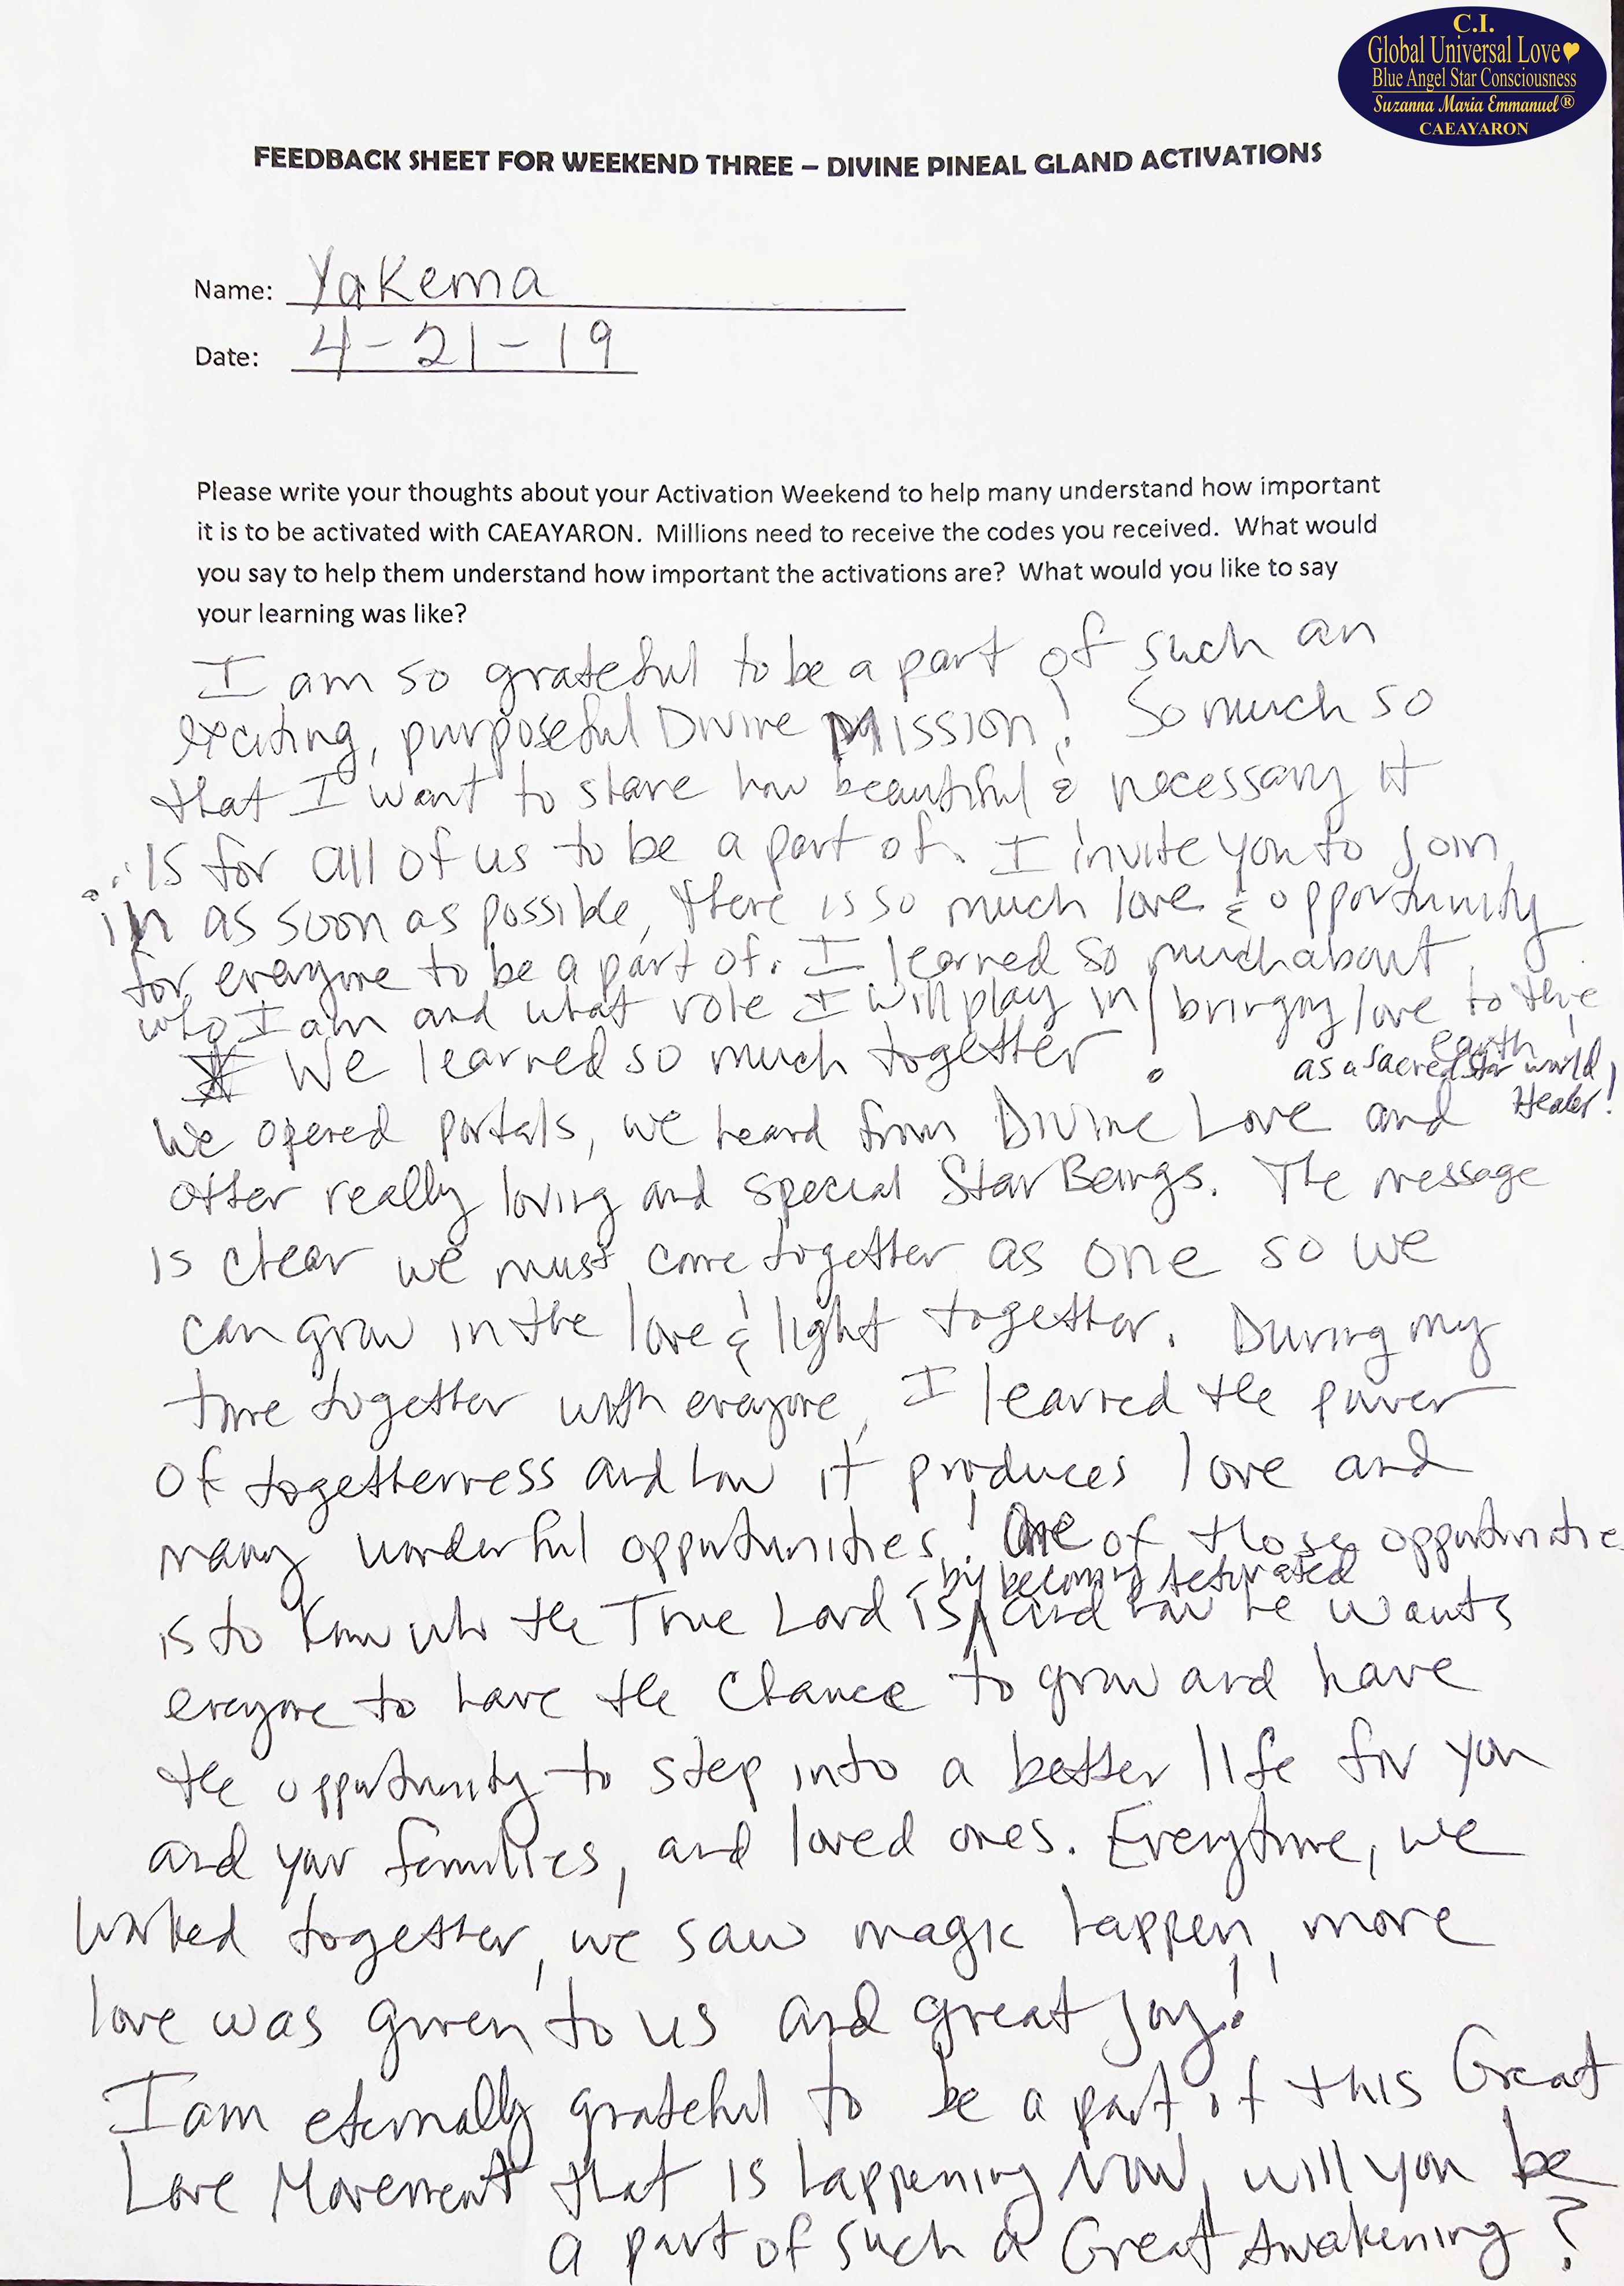 C.I.
Global Universal Love♥
Blue Angel Star Consciousness
Suzanna Maria Emmanuel®
CAEAYARON
FEEDBACK SHEET FOR WEEKEND THREE – DIVINE PINEAL GLAND ACTIVATIONS
Name: Yakema
Date: 4-21-19
Please write your thoughts about your Activation Weekend to help many understand how important
it is to be activated with CAEAYARON. Millions need to receive the codes you received. What would
you say to help them understand how important the activations are? What would you like to say
your learning was like?
I am so grateful to be a part of such an
exciting, purposeful Divine Mission! So much so
that I want to share how beautiful & necessary it
is for all of us to be a part of. I invite you to join
in as soon as possible, there is so much love & opportunity
for everyone to be a part of. I learned so much about
who I am and what role I will play in bringing love to the
earth!
as a Sacred Star world
Healer!
We learned so much together!
We opened portals, we heard from Divine Love and
other really loving and special Star Beings. The message
is clear we must come together as one so we
can grow in the love & light together. During my
time together with everyone, I learned the power
of togetherness and how it produces love and
many wonderful opportunities! One of those opportunities
by becoming activated
is to know who the True Lord is, and how he wants
everyone to have the chance to grow and have
the opportunity to step into a better life for you
and your families, and loved ones. Everytime, we
worked together, we saw magic happen, more
love was given to us and great joy!
I am eternally grateful to be a part of this Great
Love Movement that is happening now, will you be
a part of such a Great Awakening?